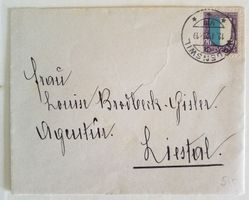 Frau
Louise Brodbeck-Gisler
Agentin.
Liestal.